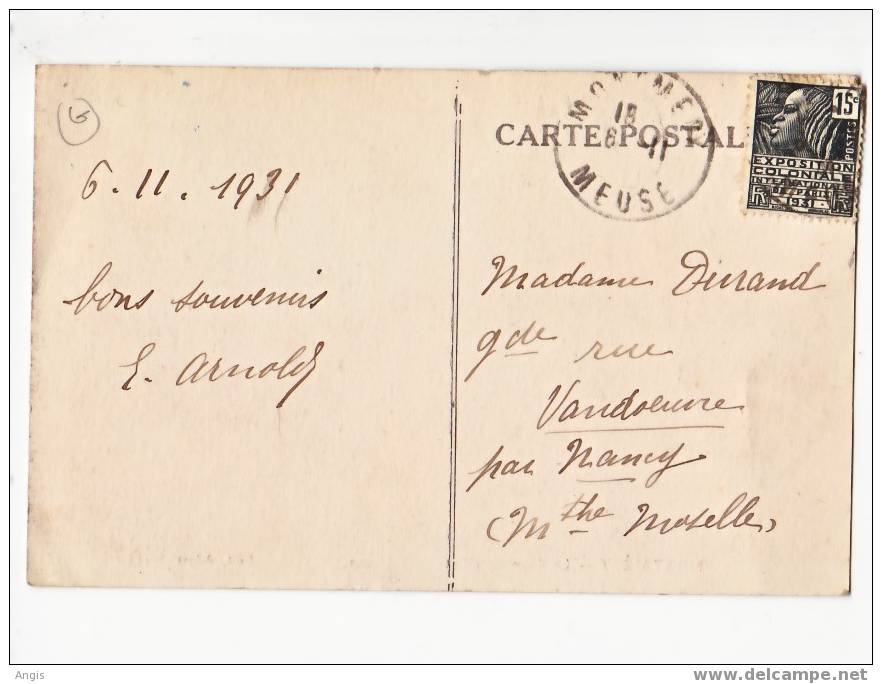 6
6.11.1931
bons souvenirs
E. Arnold
CARTE POSTALE
MONTMEDY
18
6 11
MEUSE
15c
POSTES
EXPOSITION
COLONIALE
INTERNATIONALE
1931
Madame Durand
gde rue
Vandoeuvre
par Nancy
(Mthe Moselle)
Angis
www.delcampe.net